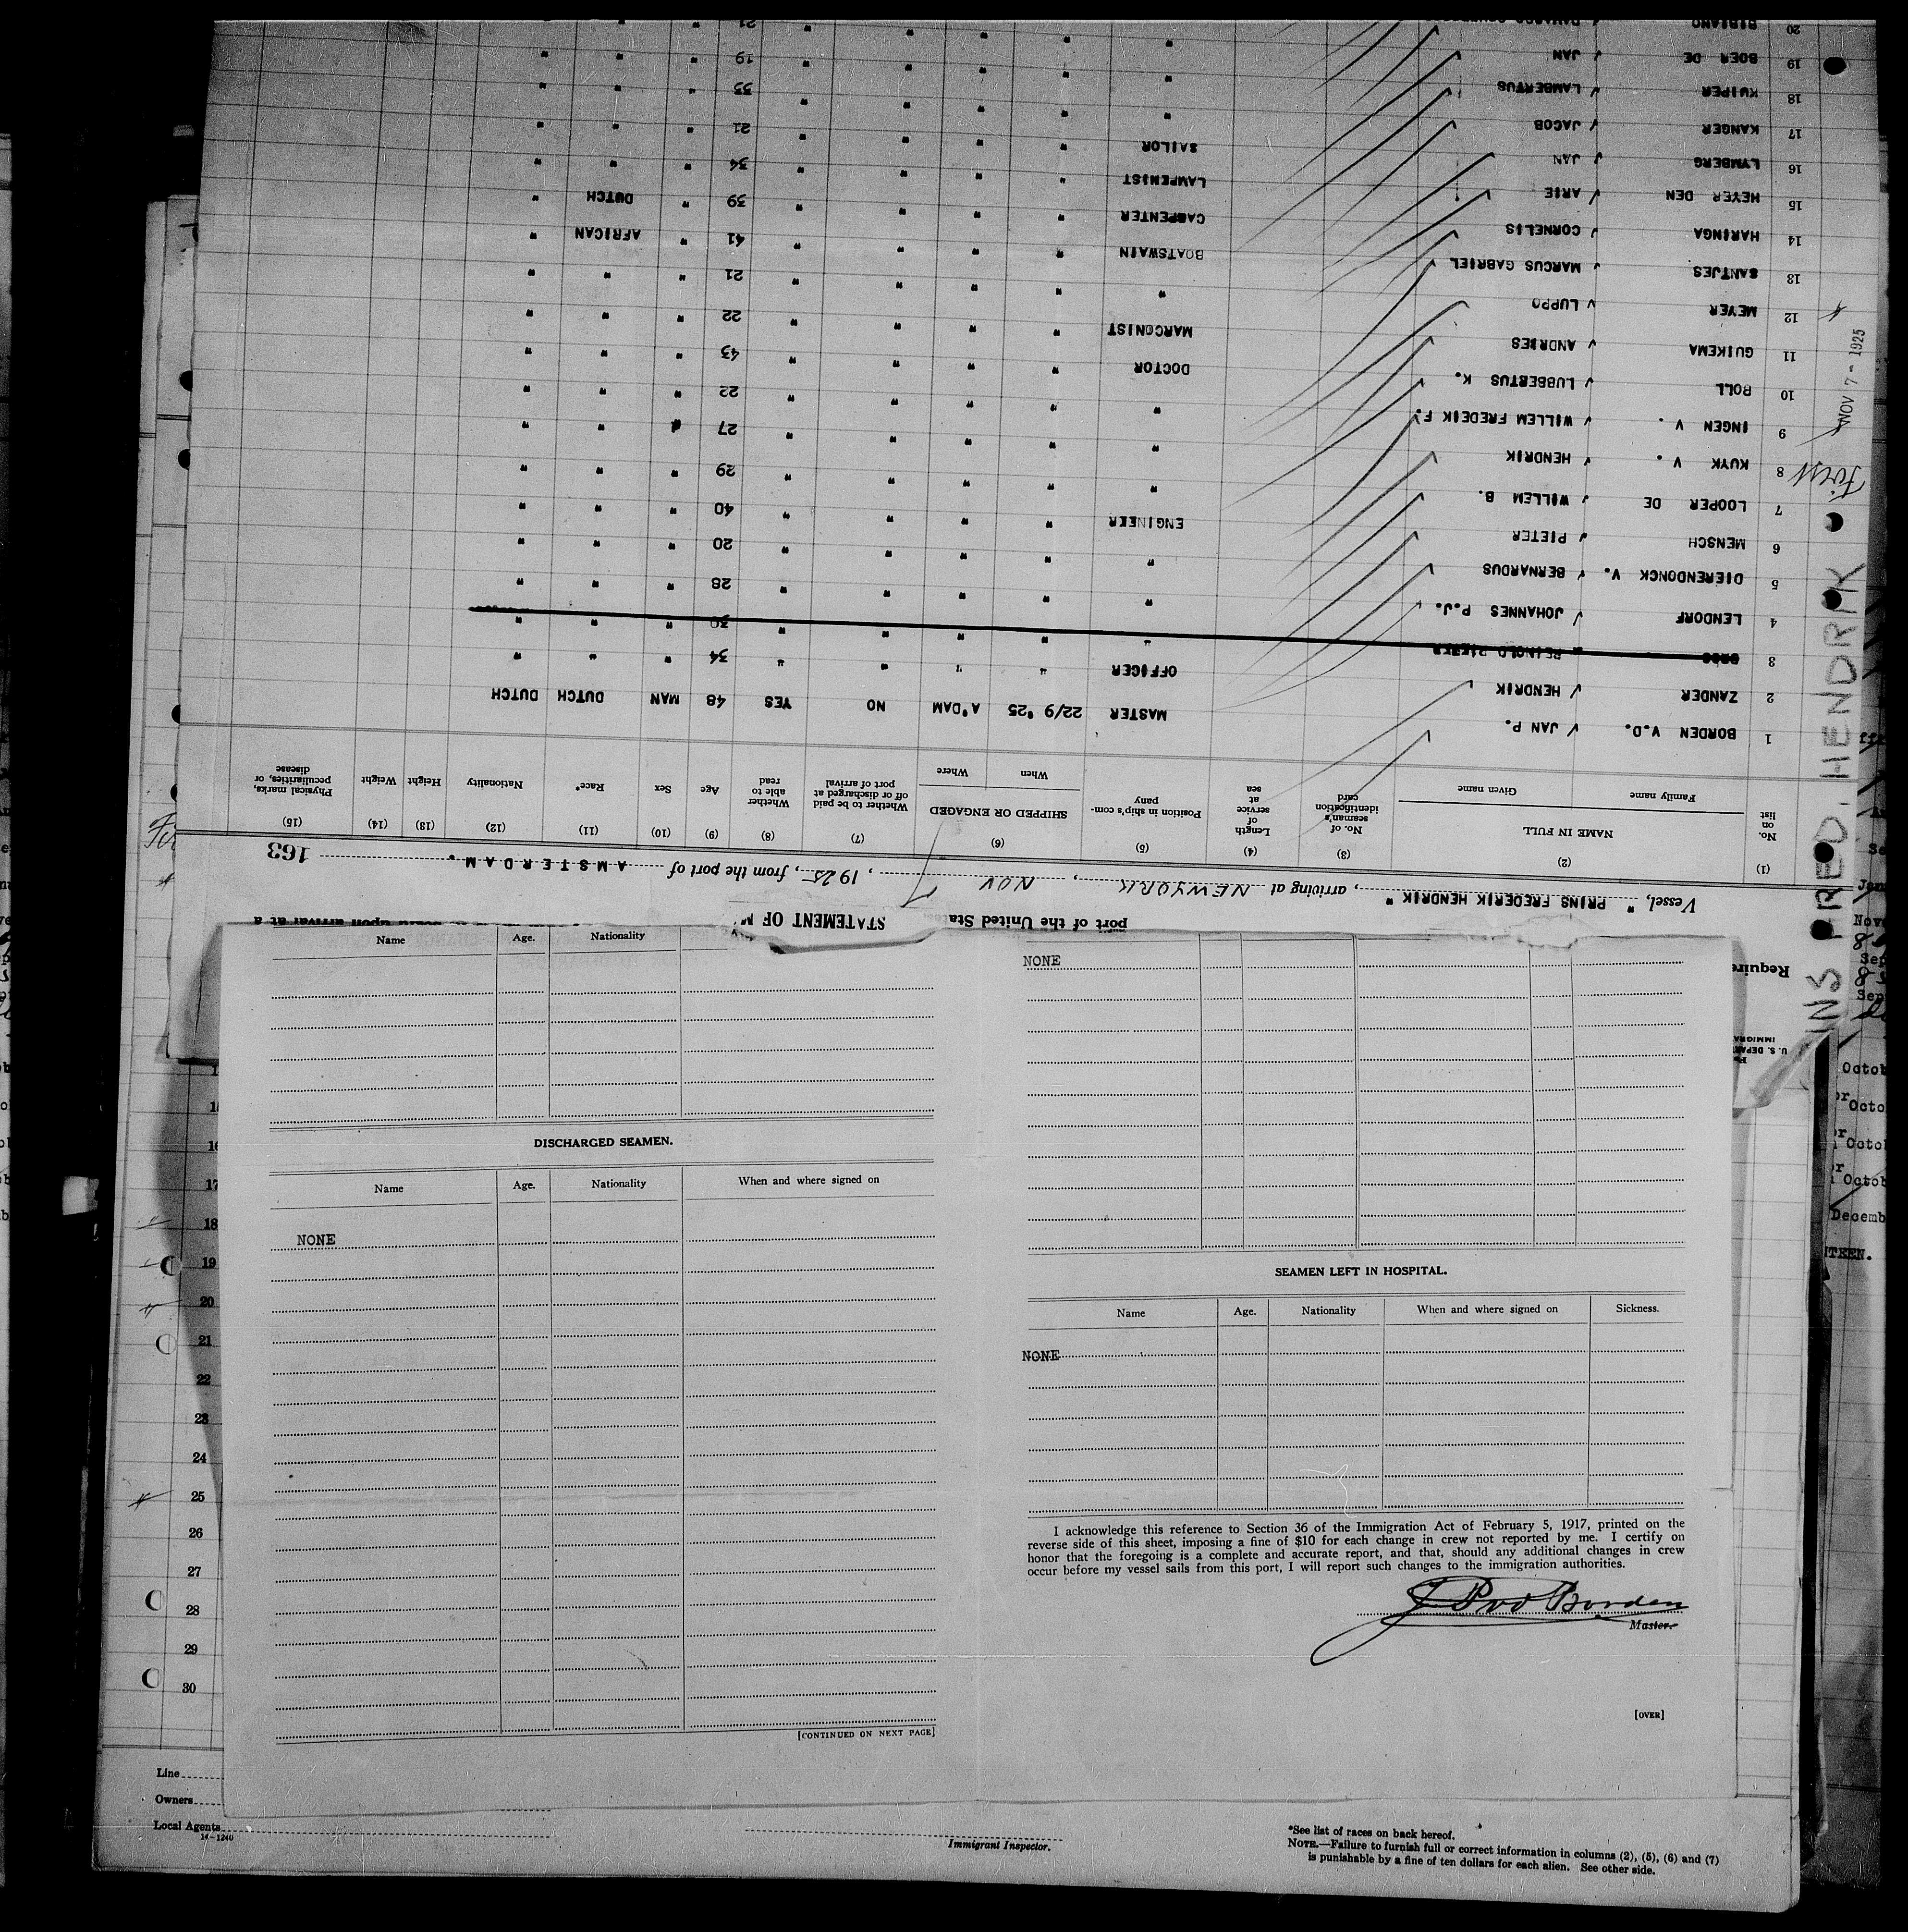 STATEMENT OF
port of the United States
Vessel, " PRINS FREDERIK HENDRIK ", arriving at NEWYORK, NOV 7, 1925, from the port of AMSTERDAM. 163
(1) (2) (3) (4) (5) (6) (7) (8) (9) (10) (11) (12) (13) (14) (15)
No. on list NAME IN FULL Family name Given name No. of seaman's identification card Length of service at sea Position in ship's company SHIPPED OR ENGAGED When Where Whether to be paid off or discharged at port of arrival Whether able to read Age Sex Race* Nationality Height Weight Physical marks, peculiarities, or disease
1 BORDEN V.D. JAN P. MASTER 22/9 '25 A'DAM NO YES 48 MAN DUTCH DUTCH
2 ZANDER HENDRIK OFFICER " " " " 34 " " "
3 REINOLD PIETER " " " " " 30 " " "
4 LENDORF JOHANNES P.J. " " " " " 28 " " "
5 DIERENDONCK V. BERNARDUS " " " " " 20 " " "
6 MENSCH PIETER ENGINEER " " " " 40 " " "
7 LOOPER DE WILLEM B. " " " " " 29 " " "
8 KUYK V. HENDRIK " " " " " 27 " " "
9 INGEN V. WILLEM FREDEIK F. " " " " " 22 " " "
10 BOLL LUBBERTUS K. DOCTOR " " " " 43 " " "
11 GUIKEMA ANDRIES MARCONIST " " " " 22 " " "
12 MEYER LUPPO " " " " " 21 " " "
13 SANTJES MARCUS GABRIEL BOATSWAIN " " " " 41 " AFRICAN "
14 HARINGA CORNELIS CARPENTER " " " " 39 " DUTCH "
15 HEYER DEN ARIE LAMPENIST " " " " 34 " " "
16 LYMBERG JAN SAILOR " " " " 21 " " "
17 KANGER JACOB " " " " " 33 " " "
18 KUIPER LAMBERTUS " " " " " 19 " " "
19 BOER DE JAN " " " " " 21 " " "
20 BIBIANO
NOV 7 - 1925
First
FRED. HENDRIK
Name Age. Nationality
DISCHARGED SEAMEN.
Name Age. Nationality When and where signed on
NONE
[CONTINUED ON NEXT PAGE]
NONE
SEAMEN LEFT IN HOSPITAL.
Name Age. Nationality When and where signed on Sickness.
NONE
I acknowledge this reference to Section 36 of the Immigration Act of February 5, 1917, printed on the
reverse side of this sheet, imposing a fine of $10 for each change in crew not reported by me. I certify on
honor that the foregoing is a complete and accurate report, and that, should any additional changes in crew
occur before my vessel sails from this port, I will report such changes to the immigration authorities.
J P v d Borden
Master.
[OVER]
17
18
19
20
21
22
23
24
25
26
27
28
29
30
Line
Owners
Local Agents
14-1240
Immigrant Inspector.
*See list of races on back hereof.
NOTE.—Failure to furnish full or correct information in columns (2), (5), (6) and (7)
is punishable by a fine of ten dollars for each alien. See other side.